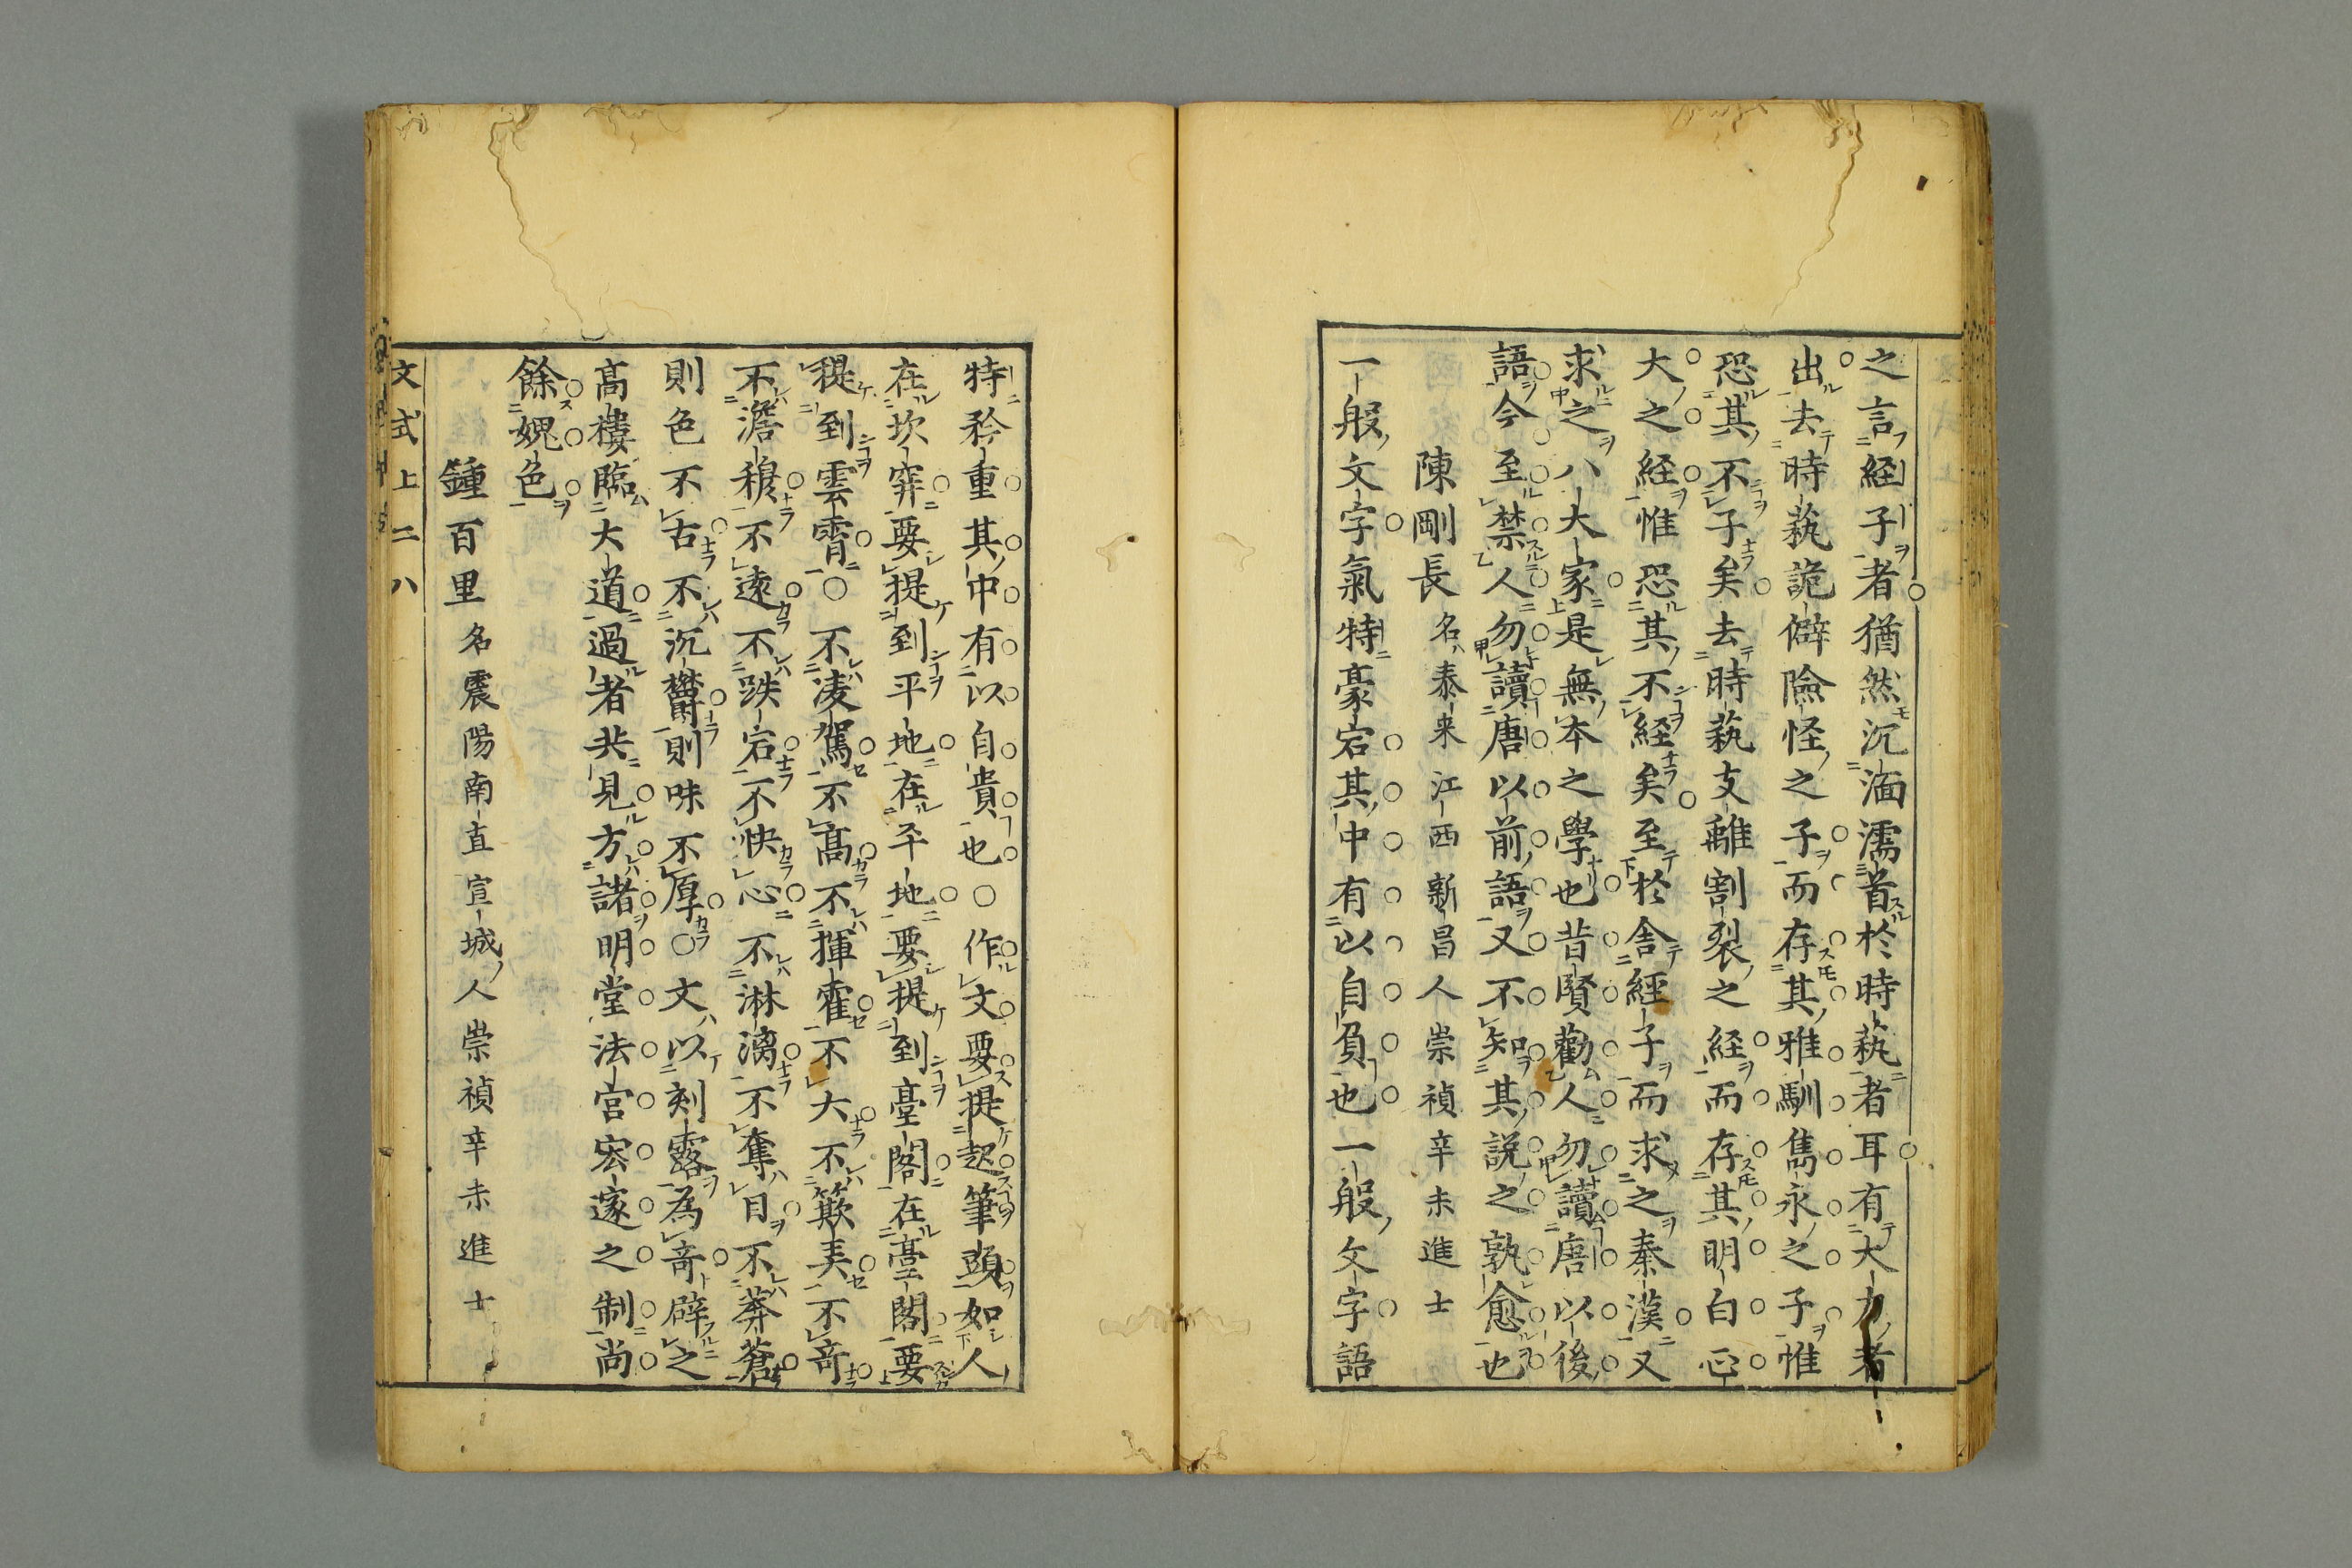 之言経子者猶然沉湎濡首於時蓺者耳有大力者
出去時蓺詭僻險怪之子而存其雅馴雋永之子惟
恐其不子矣去時蓺支離割裂之経而存其明白正
大之経惟恐其不経矣至於舎經子而求之秦漢又
求之八大家是無本之學也昔賢勸人勿讀唐以後
語今至禁人勿讀唐以前語又不知其説之孰愈也
陳剛長名泰来江西新昌人崇禎辛未進士
一般文字氣特豪宕其中有以自負也一般文字語
特矜重其中有以自貴也○作文要提起筆頭如人
在坎穽要提到平地在平地要提到臺閣在臺閣要
提到雲霄○不凌駕不髙不揮霍不大不欺弄不竒
不澹穆不遠不跌宕不快心不淋漓不奪目不莽蒼
則色不古不沉欝則味不厚○文以刻露為竒辟之
髙樓臨大道過者共見方諸明堂法宮宏邃之制尚
餘媿色
鍾百里名震陽南直宣城人崇禎辛未進士
文式上二八